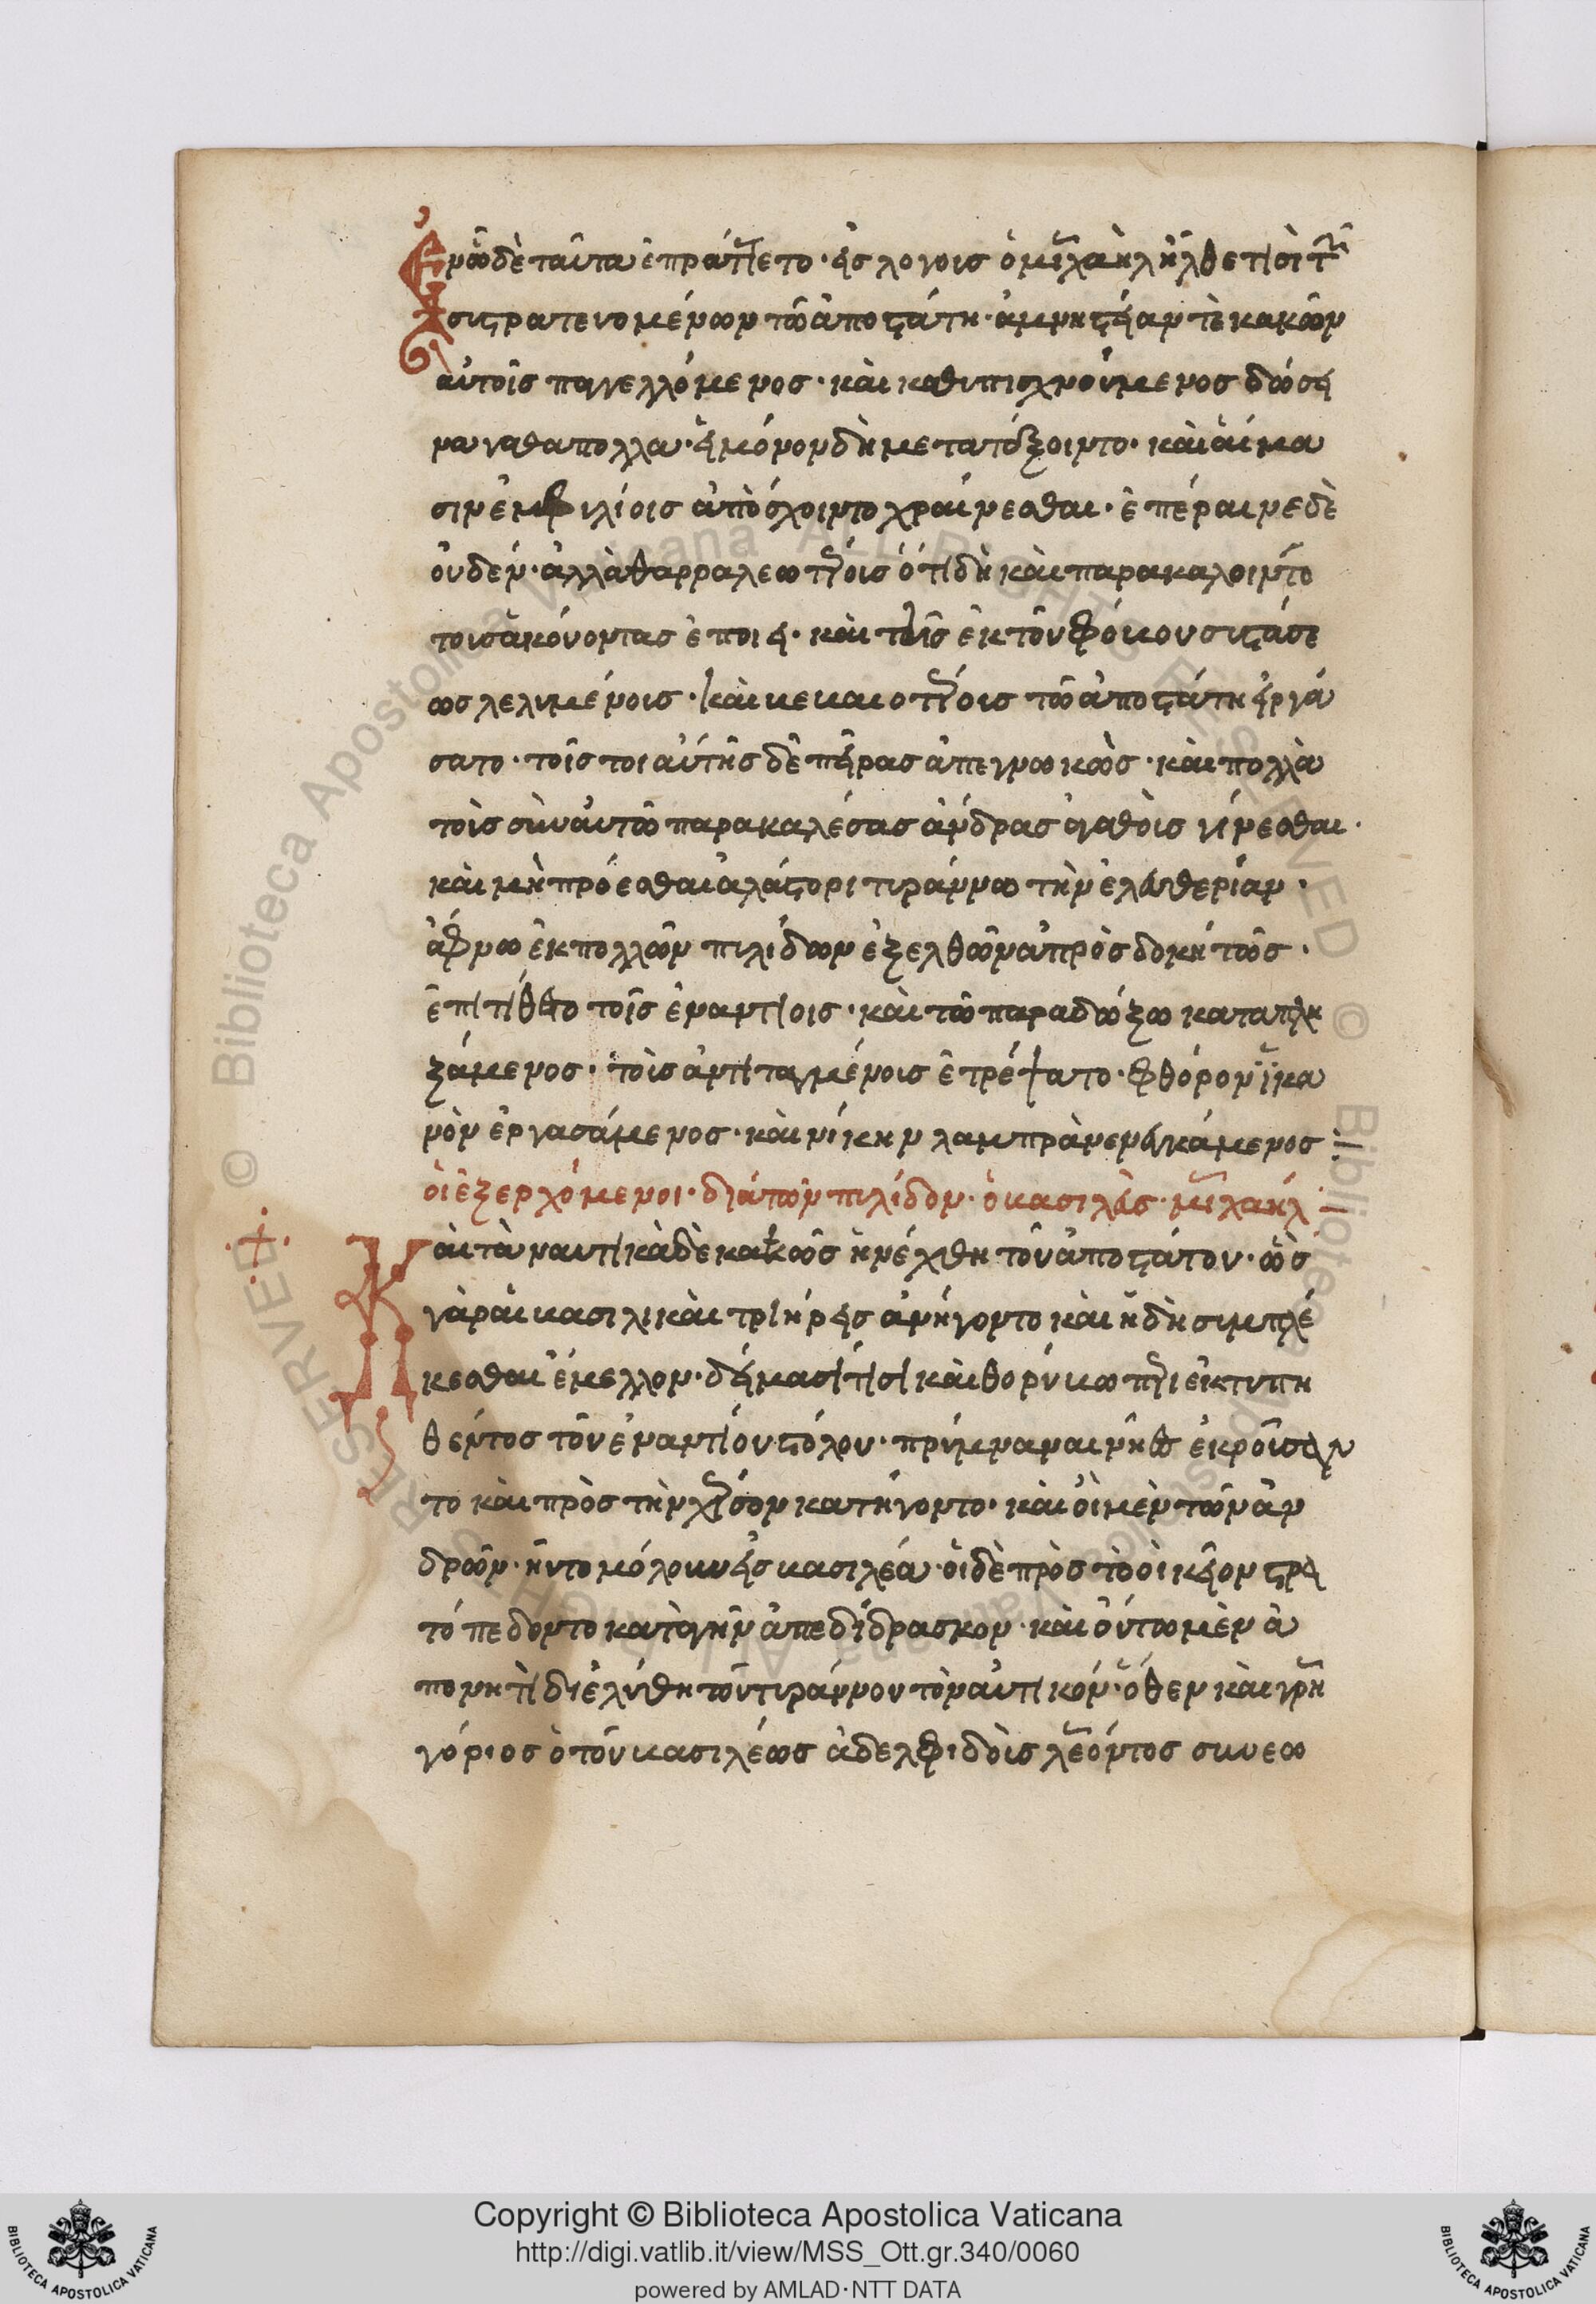 Ἐνῶ δὲ ταῦτα ἐπράττετο· εἰς λογοις ὁ μιχαὴλ ἦλθε τισὶ τῶν
συστρατευομένων τῶ ἀποστάτη· ἀμνηστείαν τὲ κακῶν
αὐτοῖς παγελλόμενος· καὶ καθυπισχνούμενος δώσει
ναγαθαπολλα· εἰ μόνον δὴ μετατάξοιντο· καὶ αἵμα
σιν ἐμφυλίοις ἀπόσχοιντο χραίνεσθαι· ἐπέραινε δὲ
οὐδέν· ἀλλὰ θαρραλεωτέροις ὅτι δὴ καὶ παρακαλοιντο
τοισ ἀκούοντας ἐποιει· καὶ τοῖς ἐκ τοῦ φόβου συστάσε
ως λελυμένοις· καὶ βεβαιοτέροις τῶ ἀποστάτη εἰργά
σατο· τοῖς τοιαύτης δὲ πείρας ἀπεγνωκῶς· καὶ πολλὰ
τοὶς σὺν αυτῶ παρακαλέσας ἀνδρας ἀγαθοὶς γίνεσθαι·
καὶ μὴ πρόεσθαι ἀλάστορι τιράννω τὴν ἐλευθερίαν·
ἀφνω ἐκ πολλῶν πιλίδων ἐξελθῶν ἀπρὸσδοκήτῶς·
ἐπιτίθετο τοῖς ἐναντίοις· καὶ τῶ παραδώξω καταπλη
ξάμενος· τοὶς ἀντιταγμένοις ἐτρέψατο· φθόρον ἱκα
νὸν ἐργασάμενος· καὶ νίκην λαμπρὰν ενεγκάμενος
οἱ ἐξερχόμενοι· διάπῶν πιλίδον· ὁ βασιλεὺς· μιχαήλ
Καὶ τὰ ναυτικὰ δὲ κακῶς ἠνέχθη τοῦ ἀποστάτου· ὡς
γὰρ αἱ βασιλικαὶ τριήρεις ἀνήγοντο καὶ ἤδη συμπλέ
κεσθαι ἔμελλον· δείμασί τισι καὶ θορύβω περιεκτυπη
θέντος τοῦ ἐναντίου στόλου· πρύμναν αι νῆες ἐκροῦσαν
το καὶ πρὸς τὴν χέρσον κατήγοντο· καὶ οἱ μὲν τῶν ἀν
δρῶν· ηὐτομόλουν εἰς βασιλέα· οἱ δὲ πρὸς τὸ οἰκεῖον στρα
τόπεδον τὸ κατὰ γῆν ἀπεδίδρασκον· καὶ οὕτω μὲν ἀ
πονητὶ διελύθη τοῦ τιράννου τὸ ναυτικόν· ὅθεν καὶ γρη
γόριος ὁ τοῦ βασιλέως ἀδελφιδοὶς λέοντος συνεω
Copyright © Biblioteca Apostolica Vaticana
http://digi.vatlib.it/view/MSS_Ott.gr.340/0060
powered by AMLAD·NTT DATA